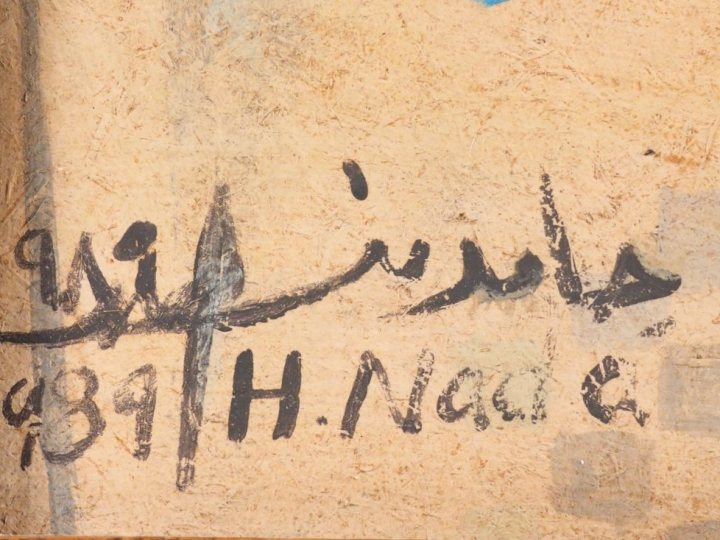 حامد ندا ٩٨٩
989 H. Nada